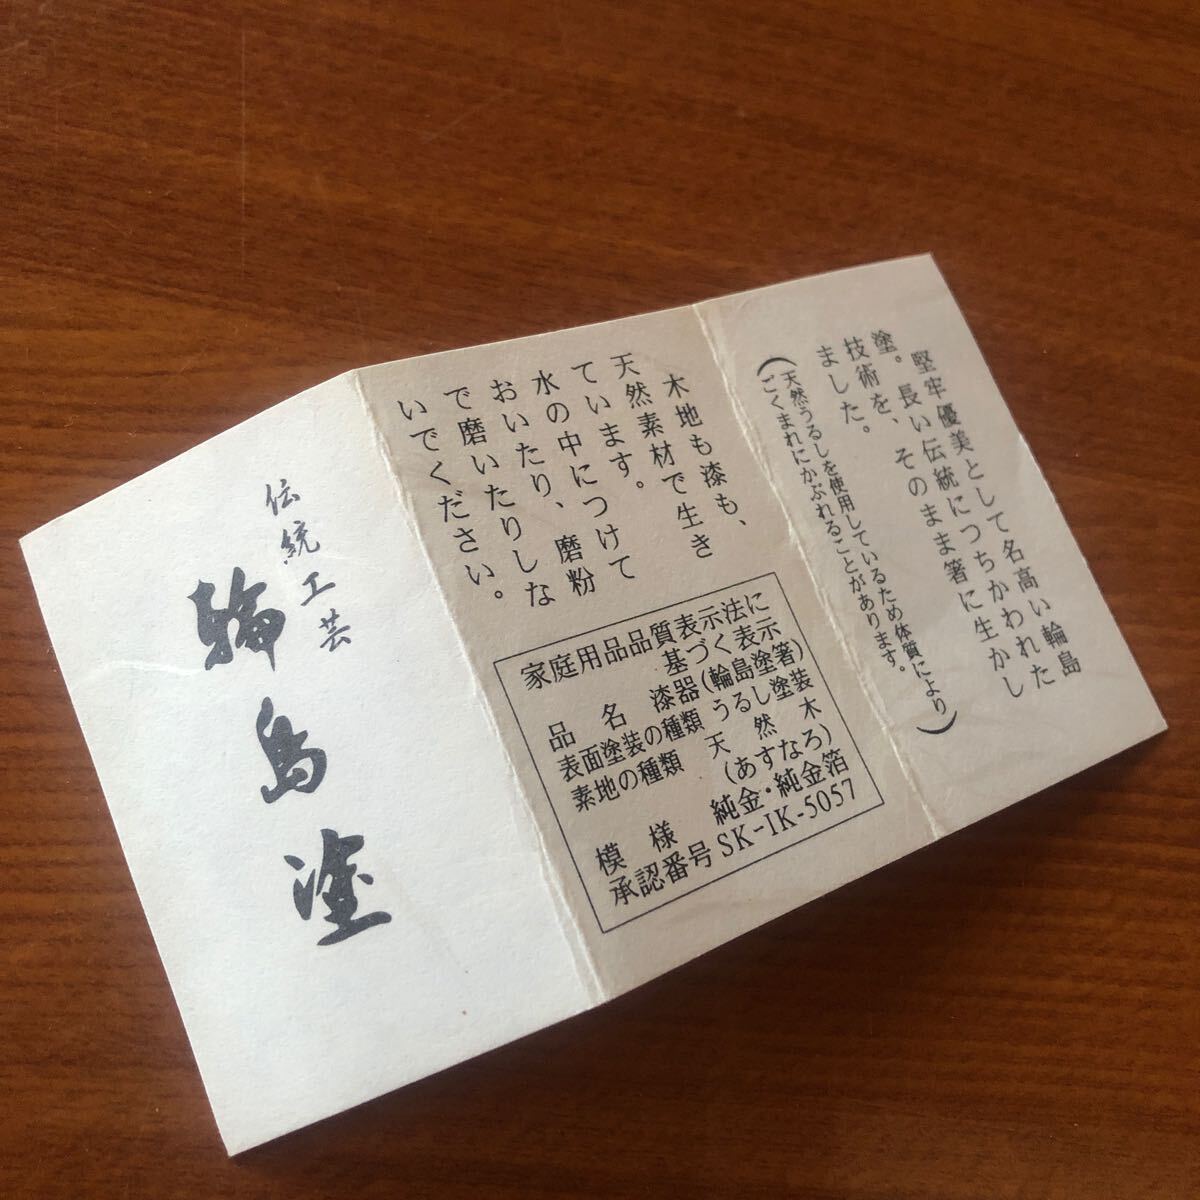 堅牢優美として名高い輪島
塗。長い伝統につちかわれた
技術を、そのまま箸に生かし
ました。
(天然うるしを使用しているため体質により
ごくまれにかぶれることがあります。)
木地も漆も、
天然素材で生き
ています。
水の中につけて
おいたり、磨粉
で磨いたりしな
いでください。
家庭用品品質表示法に
基づく表示
品名 漆器(輪島塗箸)
表面塗装の種類 うるし塗装
素地の種類 天然木
(あすなろ)
模様 純金・純金箔
承認番号 SK-IK-5057
伝統工芸
輪島塗